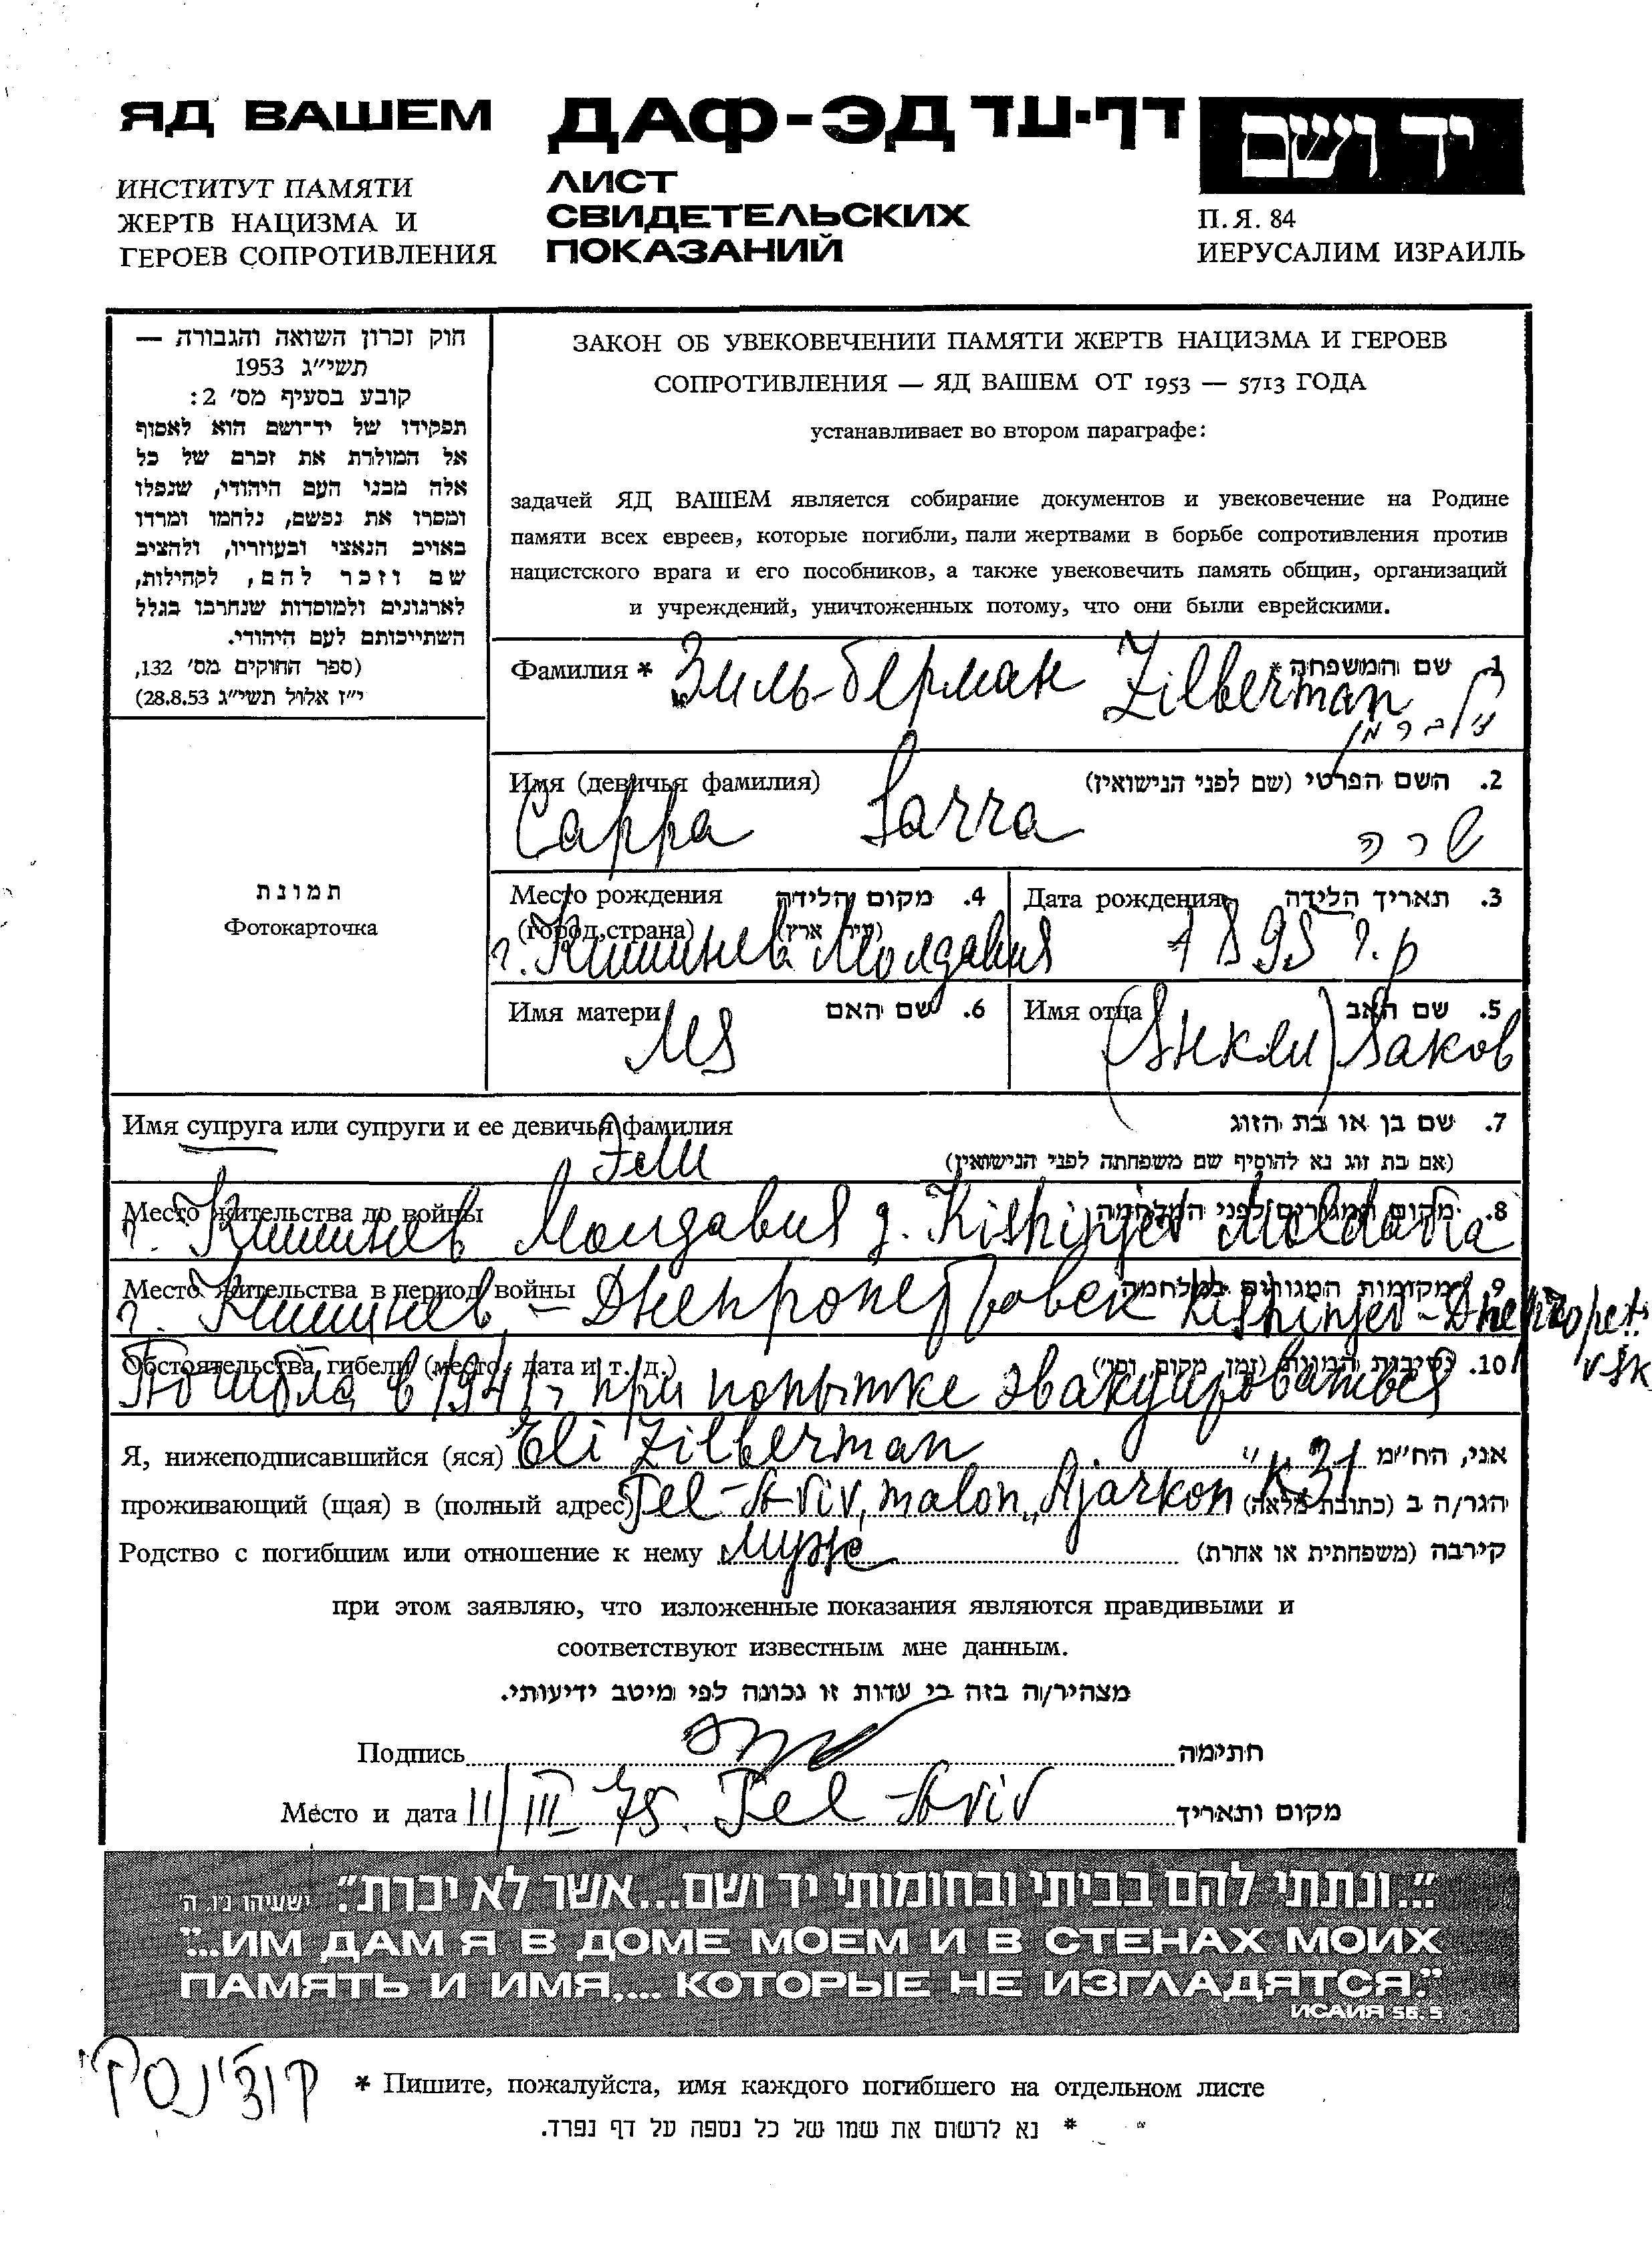 ЯД ВАШЕМ
ИНСТИТУТ ПАМЯТИ
ЖЕРТВ НАЦИЗМА И
ГЕРОЕВ СОПРОТИВЛЕНИЯ
ДАФ-ЭД דף-עד
ЛИСТ
СВИДЕТЕЛЬСКИХ
ПОКАЗАНИЙ
יד ושם
П.Я. 84
ИЕРУСАЛИМ ИЗРАИЛЬ
חוק זכרון השואה והגבורה —
תשי״ג 1953
קובע בסעיף מס׳ 2:
תפקידו של יד־ושם הוא לאסוף
אל המולדת את זכרם של כל
אלה מבני העם היהודי, שנפלו
ומסרו את נפשם, נלחמו ומרדו
באויב הנאצי ובעוזריו, ולהציב
שם וזכר להם, לקהילות,
לארגונים ולמוסדות שנחרבו בגלל
השתייכותם לעם היהודי.
(ספר החוקים מס׳ 132,
י״ז אלול תשי״ג 28.8.53)
תמונת
Фотокарточка
ЗАКОН ОБ УВЕКОВЕЧЕНИИ ПАМЯТИ ЖЕРТВ НАЦИЗМА И ГЕРОЕВ
СОПРОТИВЛЕНИЯ — ЯД ВАШЕМ ОТ 1953 — 5713 ГОДА
устанавливает во втором параграфе:
задачей ЯД ВАШЕМ является собирание документов и увековечение на Родине
памяти всех евреев, которые погибли, пали жертвами в борьбе сопротивления против
нацистского врага и его пособников, а также увековечить память общин, организаций
и учреждений, уничтоженных потому, что они были еврейскими.
Фамилия * Зиль-берман Zilberman 1. שם המשפחה *
צילברמן
Имя (девичья фамилия) 2. השם הפרטי (שם לפני הנישואין)
Сарра Sarra שרה
Место рождения 4. מקום הלידה
(город, страна) (עיר, ארץ)
г. Кишинев Молдавия
Дата рождения 3. תאריך הלידה
1895 г.р
Имя матери 6. שם האם
Имя отца 5. שם האב
(Янкли) Яаков
Имя супруга или супруги и ее девичья фамилия 7. שם בן או בת הזוג
(אם בת זוג נא להוסיף שם משפחתה לפני הנישואין)
Место жительства до войны 8. מקום המגורים לפני המלחמה
г. Кишинев Молдавия g. Kishinjev Moldavia
Место жительства в период войны 9. מקומות המגורים במלחמה
г. Кишинев - Днепропетровск Kishinjev - Dnepropet-
vsk
Обстоятельства гибели (место, дата и т. д.) 10. נסיבות המוות (זמן, מקום, וכו׳)
Погибла в 1941 г при попытке эвакуироваться
Я, нижеподписавшийся (яся) Eli Zilberman אני, הח״מ
проживающий (щая) в (полный адрес) Tel-Aviv, malon „Ajarkon" K31 הגר/ה ב (כתובת מלאה)
Родство с погибшим или отношение к нему муж קירבה (משפחתית או אחרת)
при этом заявляю, что изложенные показания являются правдивыми и
соответствуют известным мне данным.
מצהיר/ה בזה כי עדות זו נכונה לפי מיטב ידיעותי.
Подпись חתימה
Место и дата 11/III 75. Tel-Aviv מקום ותאריך
״...ונתתי להם בביתי ובחומותי יד ושם...אשר לא יכרת״. ישעיהו נ״ו, ה׳
"...ИМ ДАМ Я В ДОМЕ МОЕМ И В СТЕНАХ МОИХ
ПАМЯТЬ И ИМЯ,... КОТОРЫЕ НЕ ИЗГЛАДЯТСЯ."
ИСАИЯ 56, 5
* Пишите, пожалуйста, имя каждого погибшего на отдельном листе
* נא לרשום את שמו של כל נספה על דף נפרד.